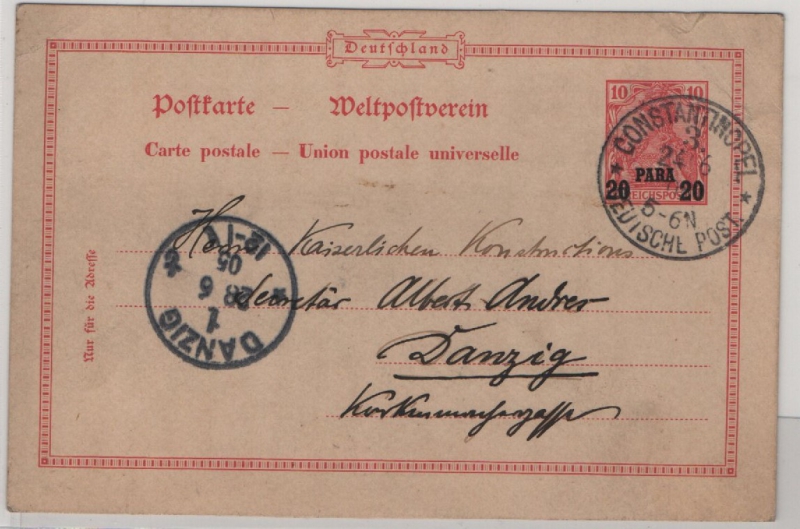 Deutschland
Postkarte — Weltpostverein
Carte postale — Union postale universelle
10 10
20 PARA 20
REICHSPOST
CONSTANTINOPEL
3
24 6
5-6N
DEUTSCHE POST
Herrn Kaiserlichen Konstructions
Secretär Albert Andres
Danzig
Nur für die Adresse
DANZIG
1
28 6
05